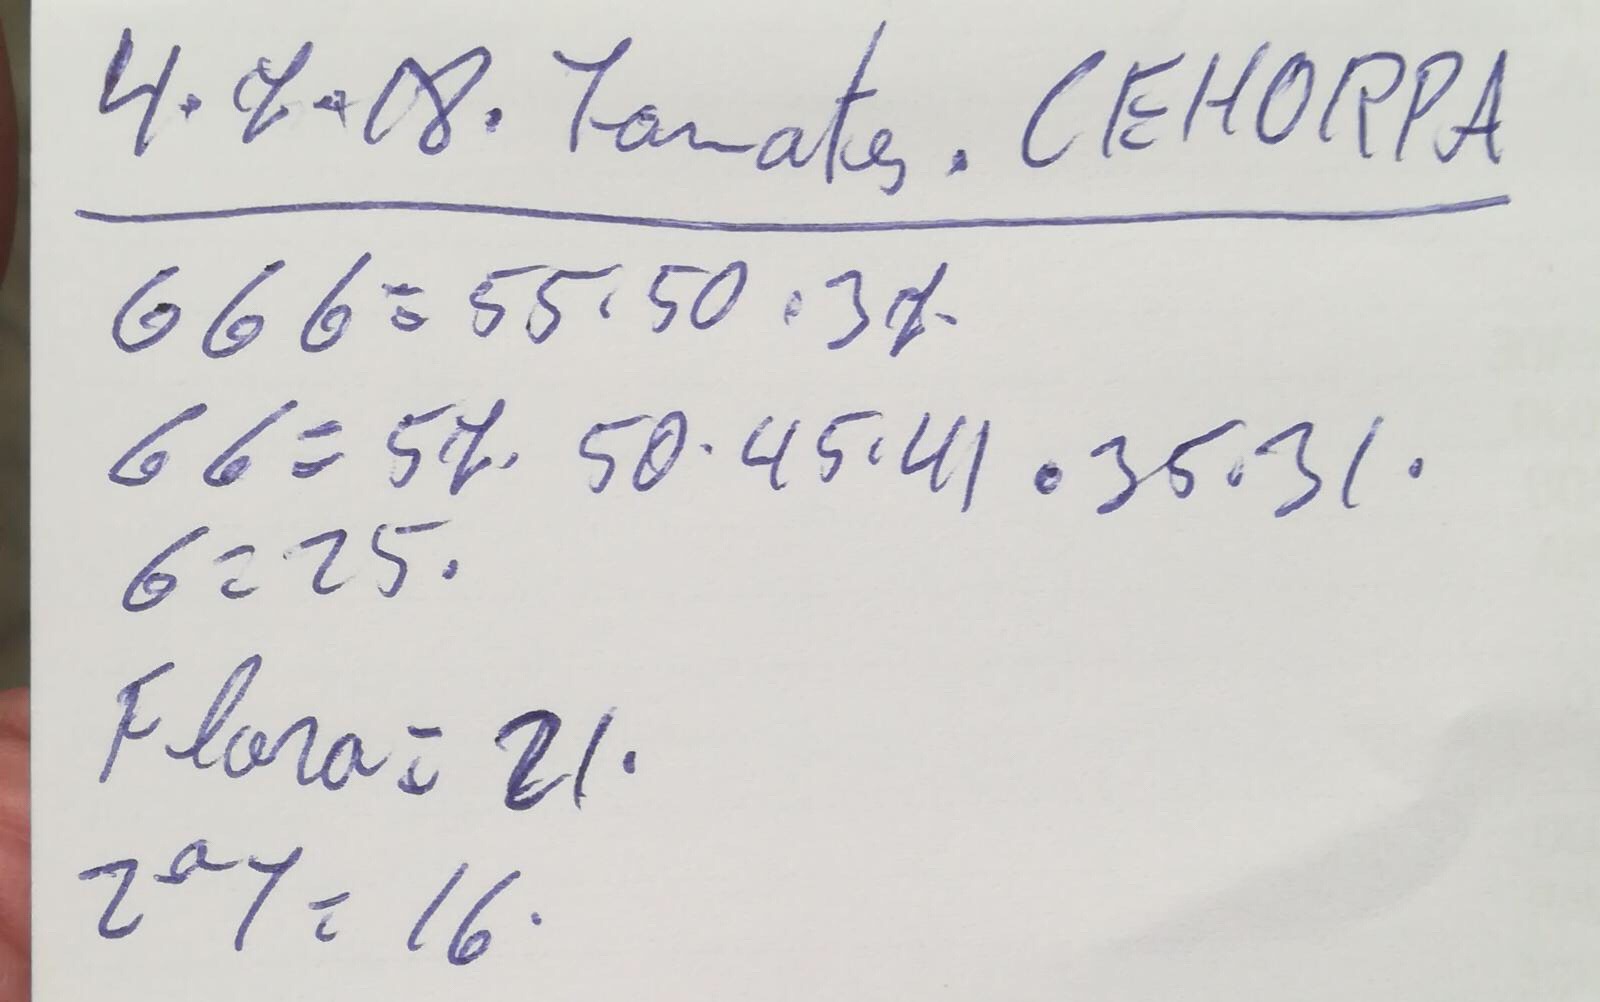 4.7.18. Tomates. CEHORPA
666=55.50.37.
66=57. 50.45.41.35.31.
6=25.
Flora=21.
2ª T=16.